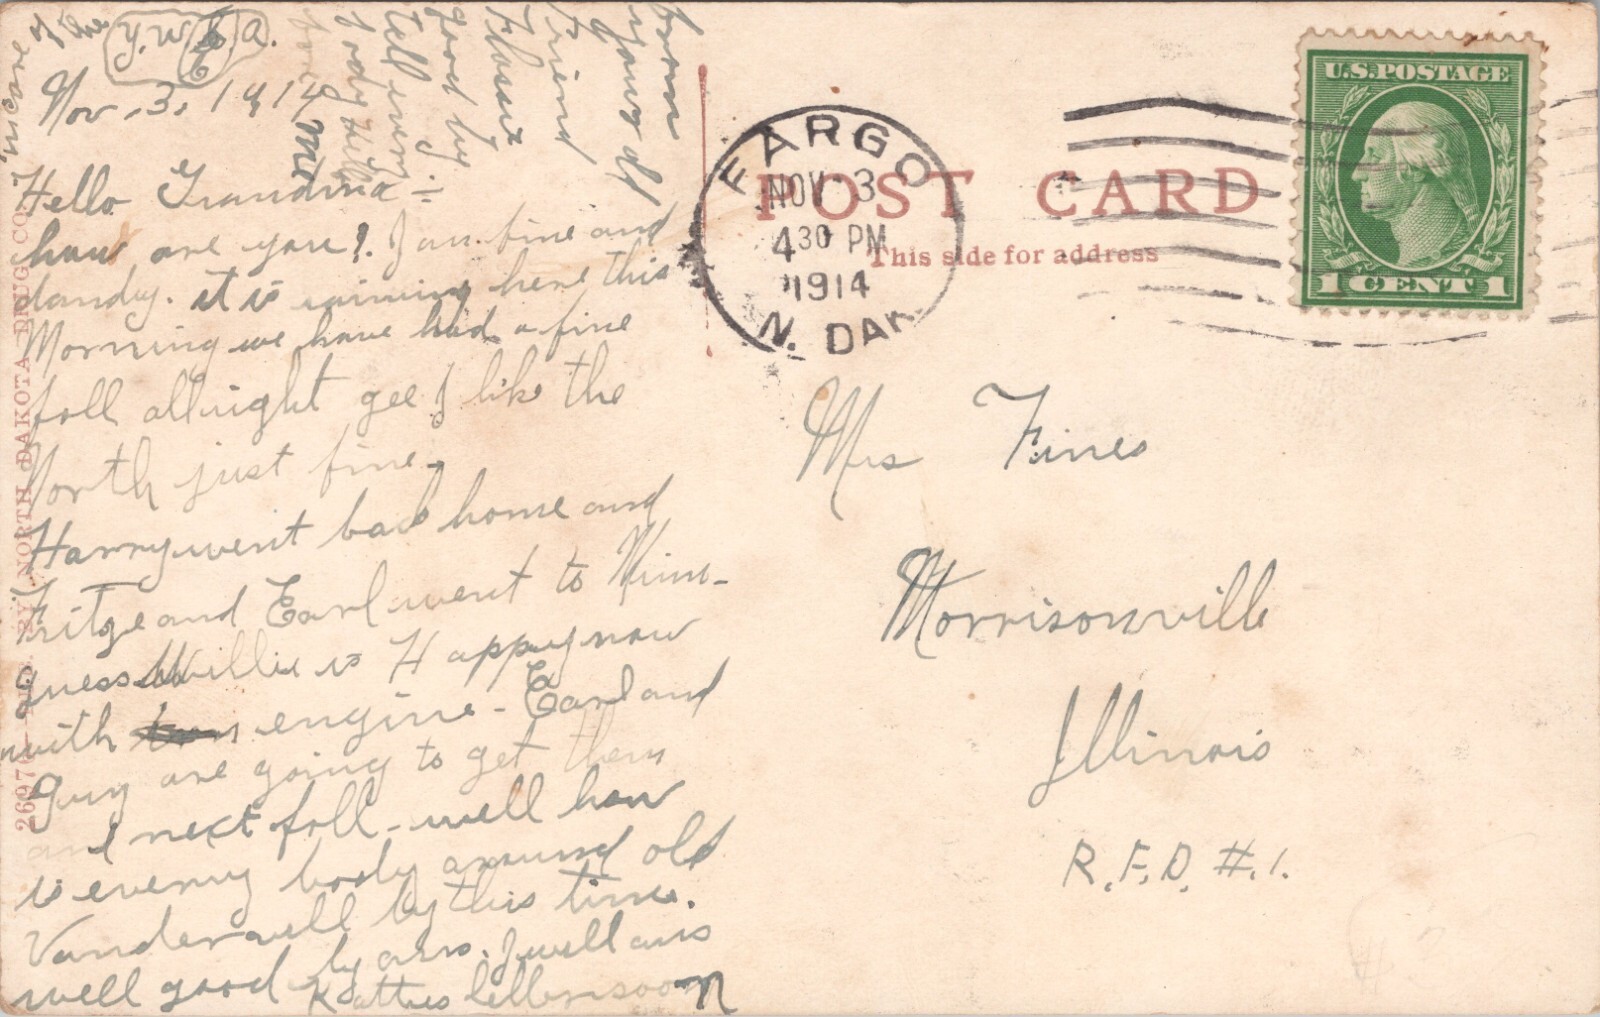 in care
of the Y.W.C.A.
Nov. 3. 1914
Hello Grandma -
how are you? I am fine and
dandy. it is raining here this
Morning we have had a fine
fall allright gee I like the
North just fine.
Harry went back home and
Fritge and Earl went to Minn-
guess Willie is Happy now
with engine - Earl and
Guy are going to get them
and next fall - well how
is every body around old
Vanderwell by this time.
well good by ans. I will ans
from
your old
friend
good by
tell every
body Hello
for me
26976 PUB. BY NORTH DAKOTA DRUG CO.
POST CARD
This side for address
FARGO
NOV 3
4 30 PM
1914
N. DAK.
U.S. POSTAGE
1 CENT 1
Mrs Fines
Morrisonville
Illinois
R.F.D. #.1.